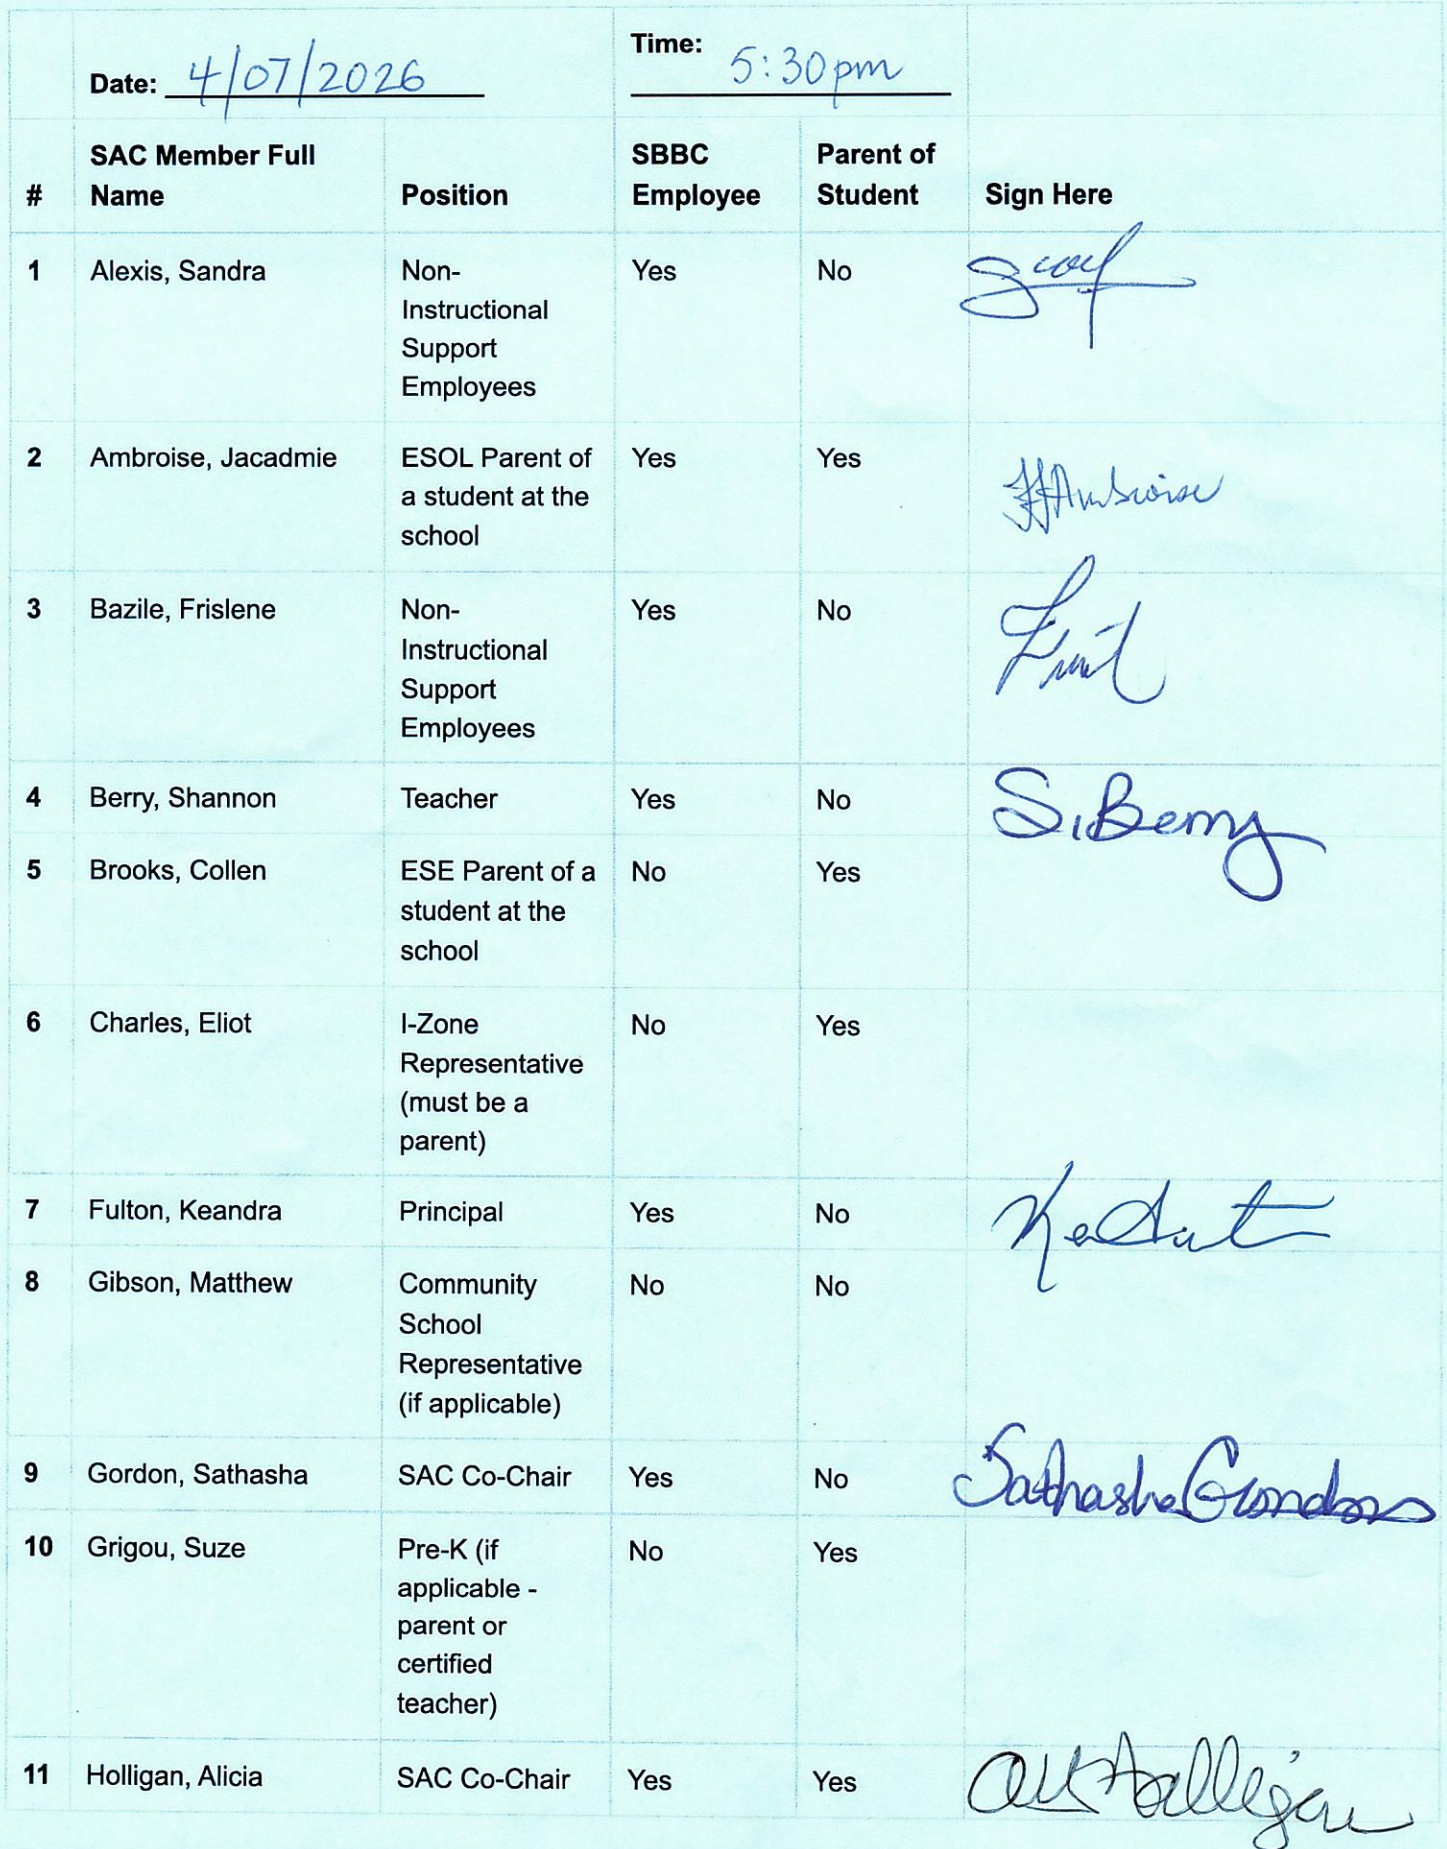 Date: 4/07/2026 Time: 5:30pm
# SAC Member Full Name Position SBBC Employee Parent of Student Sign Here
1 Alexis, Sandra Non-Instructional Support Employees Yes No
2 Ambroise, Jacadmie ESOL Parent of a student at the school Yes Yes JJAmbroise
3 Bazile, Frislene Non-Instructional Support Employees Yes No
4 Berry, Shannon Teacher Yes No S. Berry
5 Brooks, Collen ESE Parent of a student at the school No Yes
6 Charles, Eliot I-Zone Representative (must be a parent) No Yes
7 Fulton, Keandra Principal Yes No
8 Gibson, Matthew Community School Representative (if applicable) No No
9 Gordon, Sathasha SAC Co-Chair Yes No Sathasha Gordon
10 Grigou, Suze Pre-K (if applicable - parent or certified teacher) No Yes
11 Holligan, Alicia SAC Co-Chair Yes Yes